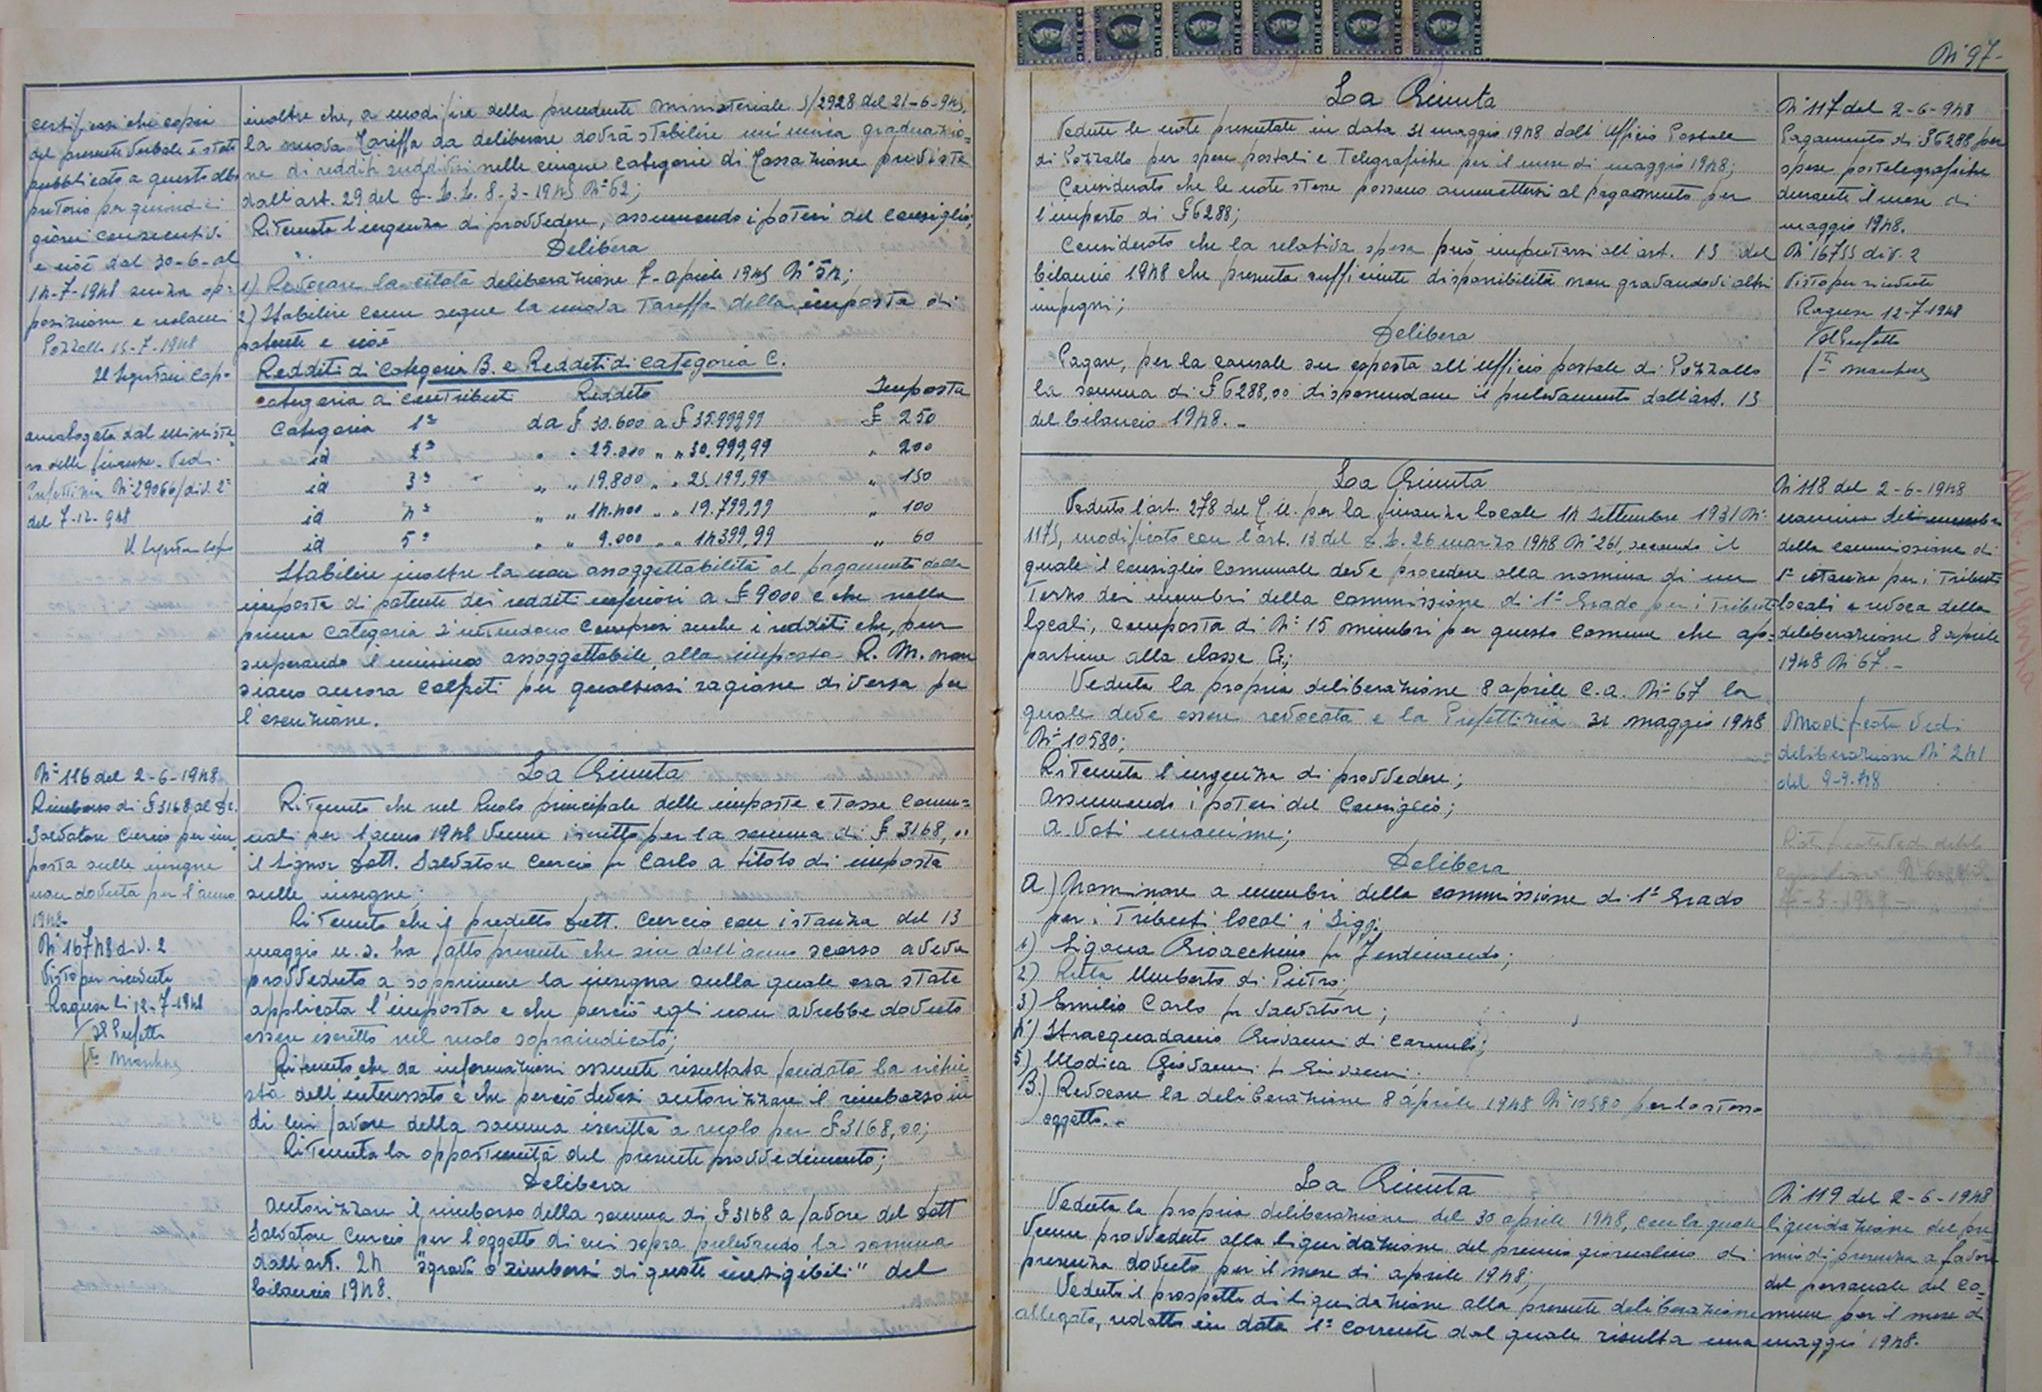 certificasi che copia
del presente verbale è stata
pubblicata a questo albo
pretorio per quindici
giorni consecutivi
e cioè dal 30-6- al
14-7-1948 senza op-
posizione e reclami
Pozzallo 15-7-1948
Il Segretario Capo
omologata dal ministe
ro delle finanze. Vedi
Prefettizia N° 29066/div. 2ª
del 7-12-948
Il Segretario Capo
inoltre che, a modifica della precedente ministeriale 5/2928 del 21-6-945,
la nuova Tariffa da deliberare dovrà stabilire un'unica graduazio=
ne di redditi suddivisi nelle cinque categorie di Tassazione previste
dall'art. 29 del D.L.L. 8-3-1945 N° 62;
Ritenuta l'urgenza di provvedere, assumendo i poteri del Consiglio;
Delibera
1) Revocare la citata deliberazione 7- aprile 1945 N° 54;
2) Stabilire come segue la nuova Tariffa della imposta di
patente e cioè
Redditi di categoria B. e Redditi di categoria C.
categoria di contribuenti Reddito Imposta
Categoria 1ª da £ 30.600 a £ 35.999,99 £ 250
id 2ª " " 25.200 " " 30.999,99 " 200
id 3ª " " 19.800 " " 25.199,99 " 150
id 4ª " " 14.400 " " 19.799,99 " 100
id 5ª " " 9.000 " " 14399,99 " 60
Stabilire inoltre la non assoggettabilità al pagamento della
imposta di patente dei redditi inferiori a £ 9000 e che nella
prima categoria s'intendono compresi anche i redditi che, pur
superando il minimo assoggettabile alla imposta R. M. non
siano ancora colpiti per qualsiasi ragione diversa per
l'esenzione.
N° 116 del 2-6-1948
Rimborso di £ 3168 al Dr.
Salvatore Curcio per im
posta sulle insegne
non dovuta per l'anno
1948
N° 16748 div. 2
Visto per ricevuta
Ragusa li 12-7-1948
Il Prefetto
La Giunta
Ritenuto che nel Ruolo principale delle imposte e tasse comu=
nali per l'anno 1948 venne iscritto per la somma di £ 3168,00
il Signor Dott. Salvatore Curcio fu Carlo a titolo di imposta
sulle insegne;
Ritenuto che il predetto Dott. Curcio con istanza del 13
maggio u.s. ha fatto presente che sin dall'anno scorso aveva
provveduto a sopprimere la insegna sulla quale era stata
applicata l'imposta e che perciò egli non avrebbe dovuto
essere iscritto nel ruolo sopraindicato;
Ritenuto che da informazioni assunte risultata fondata la richie=
sta dell'interessato e che perciò devesi autorizzare il rimborso in
di lui favore della somma iscritta a ruolo per £ 3168,00;
Ritenuta la opportunità del presente provvedimento;
Delibera
Autorizzare il rimborso della somma di £ 3168 a favore del Dott
Salvatore Curcio per l'oggetto di cui sopra prelevando la somma
dall'art. 24 "sgravi o rimborsi di quote inesigibili" del
bilancio 1948.
N° 97-
La Giunta
Vedute le note presentate in data 31 maggio 1948 dall'Ufficio Postale
di Pozzallo per spese postali e Telegrafiche per il mese di maggio 1948;
Considerato che le note stesse possono ammettersi al pagamento per
l'importo di £ 6288;
Considerato che la relativa spesa può imputarsi all'art. 13 del
bilancio 1948 che presenta sufficiente disponibilità non gravandovi altri
impegni;
Delibera
Pagare, per la causale su esposta all'Ufficio postale di Pozzallo
la somma di £ 6288,00 disponendone il prelevamento dall'art. 13
del bilancio 1948.-
N° 117 del 2-6-948
Pagamento di £ 6288 per
spese postelegrafiche
durante il mese di
maggio 1948.
N° 16755 div. 2
Visto per ricevuta
Ragusa 12-7-1948
Il Prefetto
La Giunta
Veduto l'art. 278 del T.U. per la finanza locale 14 Settembre 1931 N°
1175, modificato con l'art. 13 del D.L. 26 marzo 1948 N° 261, secondo il
quale il Consiglio Comunale deve procedere alla nomina di un
Terzo dei membri della Commissione di 1° Grado per i Tributi
locali, composta di N° 15 membri per questo Comune che ap=
partiene alla classe G;
Veduta la propria deliberazione 8 aprile c.a. N° 67 la
quale deve essere revocata e la Prefettizia 31 maggio 1948
N° 10580;
Ritenuta l'urgenza di provvedere;
Assumendo i poteri del Consiglio;
A voti unanimi;
Delibera
A) Nominare a membri della commissione di 1° Grado
per i Tributi locali i Sigg.
1) Sigona Gioacchino fu Ferdinando;
2) Rutta Umberto di Pietro;
3) Emilio Carlo fu Salvatore;
4) Stracquadanio Giovanni di Carmelo;
5) Modica Giovanni fu Giovanni;
B.) Revocare la deliberazione 8 aprile 1948 N° 10580 per lo stesso
oggetto.-
N° 118 del 2-6-1948
nomina dei membri
della commissione di
1ª istanza per i Tributi
locali e revoca della
deliberazione 8 aprile
1948 N° 67.-
Modificata Vedi
deliberazione N° 241
del 2-9-948
La Giunta
Veduta la propria deliberazione del 30 aprile 1948, con la quale
venne provveduto alla liquidazione del premio giornaliero di
presenza dovuto per il mese di aprile 1948;
Veduto il prospetto di liquidazione alla presente deliberazione
allegato, redatto in data 1° corrente dal quale risulta una
N° 119 del 2-6-1948
liquidazione del pre=
mio di presenza a favore
del personale del co=
mune per il mese di
maggio 1948.